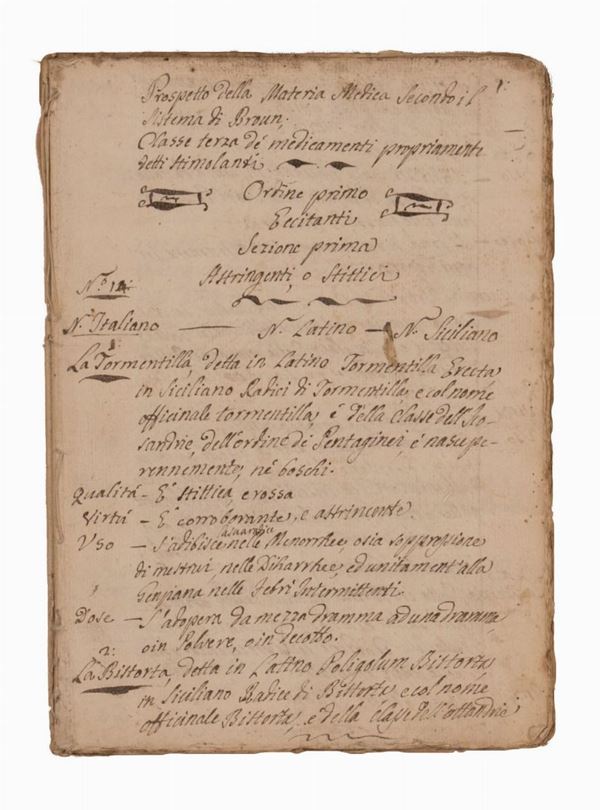 1:
Prospetto della Materia Medica Secondo il
Sistema di Broun;
Classe terza dé medicamenti propriamenti
detti stimolanti
Ordine primo
Eccitanti
Sezione prima
Astringenti o Stittici
N.º 14
N. Italiano — N. Latino — N. Siciliano
1:
La Tormentilla, detta in Latino Tormentilla Erecta
in Siciliano Radici di Tormentilla, e col nome
officinale tormentilla, é della Classe dell'Ico-
sandrie, dell'ordine dé Pentaginei, é nasce pe-
rennemente, né boschi.
Qualitá – E' stittica, e rossa
Virtú – E' corroborante, e astrincente.
Uso – S'adibisce nelle Menorrhee, o sia soppressione
di mestrui, nelle Diharrhee, ed unitament'alla
Genziana, nelle Febri Intermittenti.
Dose – S'adopera da mezza dramma ad una dramma
o in Polvere, o in decotto.
2:
La Bittorta, detta in Latino Poligolum Bittorta,
in Siciliano Radice di Bittorta, e col nome
officinale Bittorta, é della Classe dell'ottandrie,